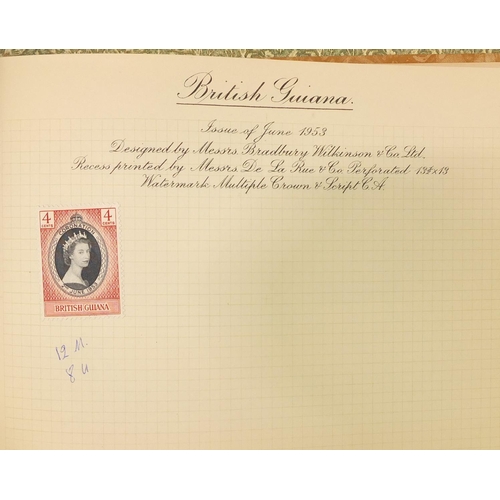 British Guiana.
Issue of June 1953
Designed by Messrs. Bradbury Wilkinson & Co. Ltd.
Recess printed by Messrs. De La Rue & Co Perforated 13½x13
Watermark Multiple Crown & Script C.A.
4 CENTS 4 CENTS
CORONATION
JUNE 1953
BRITISH GUIANA
12 M.
8 U